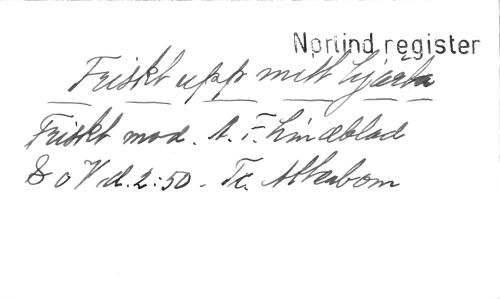 Norlind register
Friskt upp mitt hjärta
Friskt mod. A. F. Lindblad
S o V d. 2:50. Tr. Atterbom